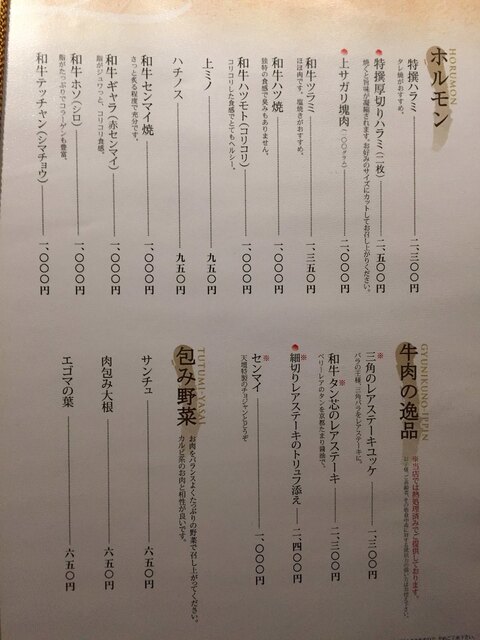 ホルモン
HORUMON
特撰ハラミ 二、三〇〇円
タレ焼がおすすめ。
特撰厚切りハラミ(二枚) 二、五〇〇円
焼くと旨味が凝縮されます。お好みのサイズにカットしてお召し上がりください。
上サガリ塊肉(一〇〇グラム) 二、〇〇〇円
和牛ツラミ 一、三五〇円
ほほ肉です。塩焼きがおすすめ。
和牛ハツ焼 一、〇〇〇円
独特の食感で臭みもありません。
和牛ハツモト(コリコリ) 一、〇〇〇円
コリコリした食感でとてもヘルシー。
上ミノ 九五〇円
ハチノス 九五〇円
和牛センマイ焼 一、〇〇〇円
さっと炙る程度で充分です。
和牛ギャラ(赤センマイ) 一、〇〇〇円
脂がジュワっと、コリコリ食感。
和牛ホソ(シロ) 一、〇〇〇円
脂がたっぷりでコラーゲンも豊富。
和牛テッチャン(シマチョウ) 一、〇〇〇円
牛肉の逸品
GYUNIKUNO-IPPIN
※当店では熱処理済みでご提供しております。
※三角のレアステーキユッケ 一、三〇〇円
バラの王様、三角バラをレアステーキに。
※和牛タン芯のレアステーキ 二、三〇〇円
ベリーレアのタンを京都たまり醤油で。
※細切りレアステーキのトリュフ添え 二、四〇〇円
※センマイ 一、〇〇〇円
天壇特製のチョジャンとどうぞ
包み野菜
TUTUMI-YASAI
お肉をバランスよくたっぷりの野菜で召し上がってください。
カルビ系のお肉と相性が良いです。
サンチュ 六五〇円
肉包み大根 六五〇円
エゴマの葉 六五〇円